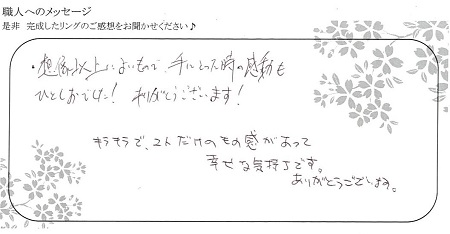 職人へのメッセージ
是非 完成したリングのご感想をお聞かせください♪
・想像以上によいもので、手にとった時の感動も
ひとしおでした! ありがとうございます!
キラキラで、2人だけのもの感があって
幸せな気持ちです。
ありがとうございます。